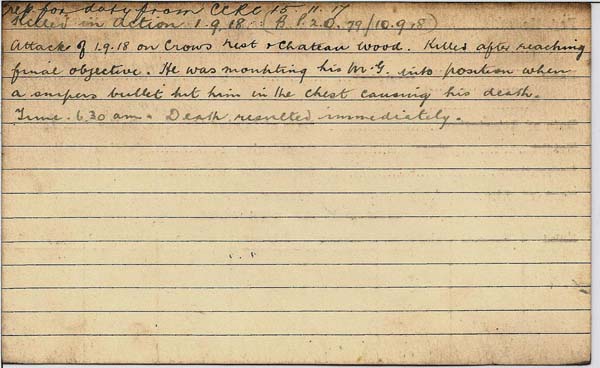 rep for duty from CCRC 15.11.17
Killed in action 1.9.18. (B.P.2.O. 79/10.9.18)
Attack of 1.9.18 on Crows nest & Chateau Wood. Killed after reaching
final objective. He was mounting his M.G. into position when
a snipers bullet hit him in the chest causing his death.
Time. 6.30 am. Death resulted immediately.